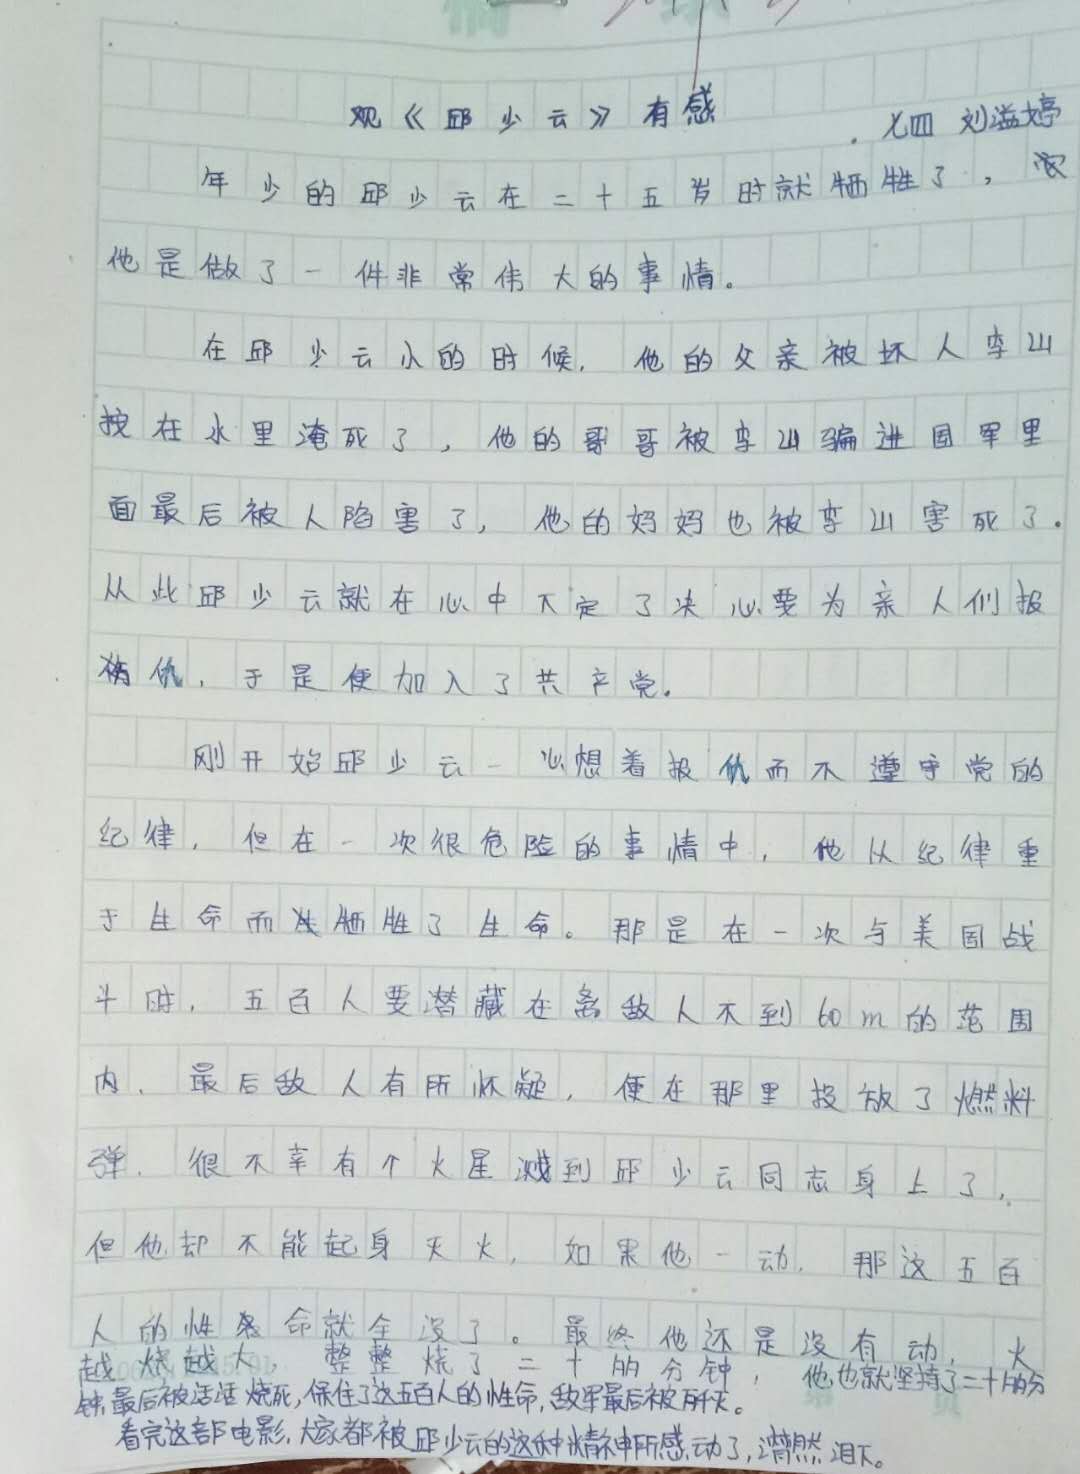 观《邱少云》有感
七四 刘溢婷
年少的邱少云在二十五岁时就牺牲了，
他是做了一件非常伟大的事情。
在邱少云小的时候，他的父亲被坏人李山
按在水里淹死了，他的哥哥被李山骗进国军里
面最后被人陷害了，他的妈妈也被李山害死了.
从此邱少云就在心中下定了决心要为亲人们报
仇，于是便加入了共产党.
刚开始邱少云一心想着报仇而不遵守党的
纪律，但在一次很危险的事情中，他以纪律重
于生命而牺牲了生命。那是在一次与美国战
斗时，五百人要潜藏在离敌人不到60m的范围
内，最后敌人有所怀疑，便在那里投放了燃料
弹，很不幸有个火星溅到邱少云同志身上了，
但他却不能起身灭火，如果他一动，那这五百
人的性命就全没了。最终他还是没有动，火
越烧越大，整整烧了二十的分钟，他也就坚持了二十的分
钟，最后被活活烧死，保住了这五百人的性命，敌军最后被歼灭。
看完这部电影，大家都被邱少云的这种精神所感动了，潸然泪下。